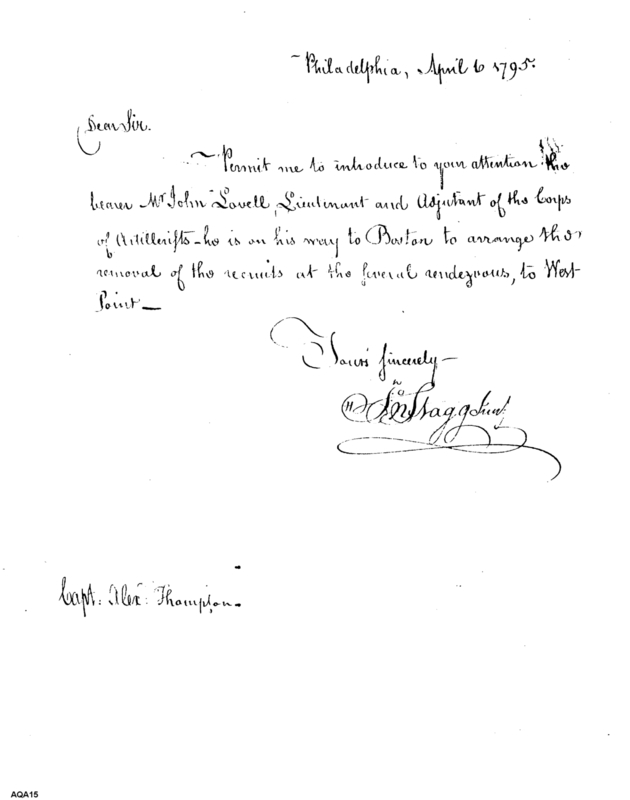 Philadelphia, April 6 1795.
Dear Sir.
Permit me to introduce to your attention the
bearer Mr John Lovell, Lieutenant and Adjutant of the Corps
of Artillerists _ he is on his way to Boston to arrange the
removal of the recruits at the several rendezvous, to West
Point _
Yours sincerely _
Jno Stagg Junr
Capt: Alexr: Thompson.
AQA15